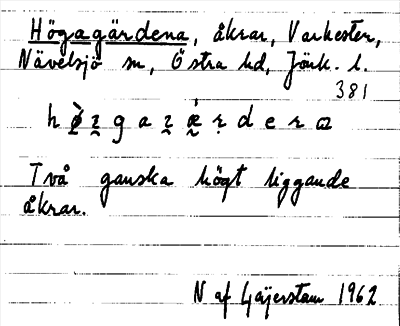 Högagärdena, åkrar, Varkester,
Nävelsjö sn, Östra hd, Jönk. l.
381
Två ganska högt liggande
åkrar.
N af Geijerstam 1962